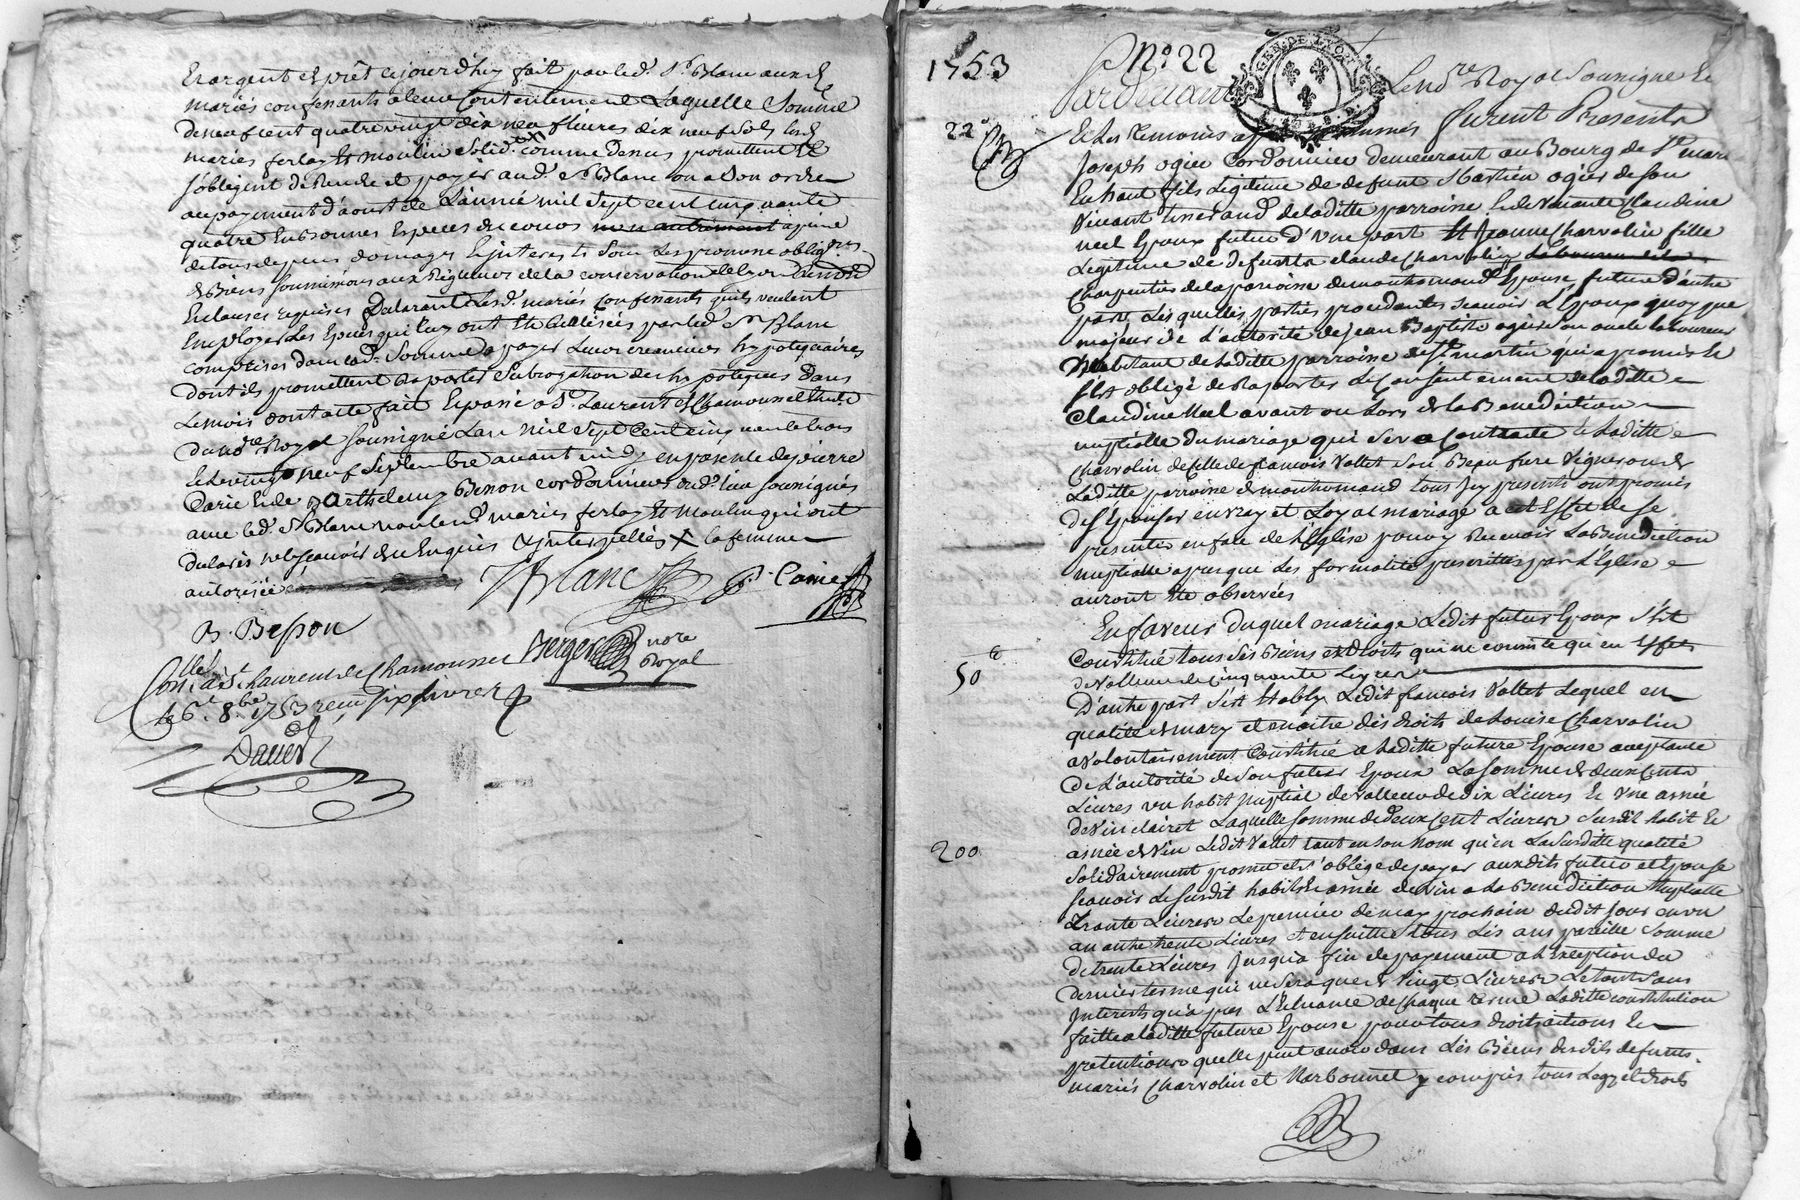 En argent et prêt cejourdhuy fait par led. Sr. Blanc auxd
mariés confenants a leur Contentement Laquelle Somme
de neuf cent quatre vingt dix neuf livres dix neuf Sols lesd
mariés ferlay Et moulin Solid. comme dessus promettent Et
s'obligent de Rendre et payer aud. Sr Blanc ou a Son ordre
au payement d'aoust de L'année mil Sept cent cinquante
quatre En Bonnes Especes du cours apeine
de tous depens domages Et interets Sous Les promesse oblig.
de Biens Soumissions aux Rigueurs de la conservation de Lyon
Et clauses requises Declarant Lesd. mariés Confenants qu'ils veulent
Employer Les Especes qui leur ont Eté delivrés par led. Sr Blanc
comprises dans lad. Somme a payer Leurs creanciers hypotequaires
dont ils promettent Raporter Subrogation des hypoteques Dans
Le mois dont acte fait Et passé a St. Laurent de Chamousset Etude
du no.re Royal Soussigné L'an mil Sept Cent cinquante trois
Et le vingt neuf Septembre avant midy en presence de pierre
Carie Et de Barthelemy Besson cordonniers aud. lieu soussignés
avec led. Sr Blanc non lesd. mariés ferlay Et Moulin qui ont
declarés ne Sçavoir de ce Enquis Et interpellés X la femme
autorisée
Blanc P. Carie
B. Besson
Berger nore
Royal
Con.llé a St Laurent de Chamousset
le 6. 8.bre 1753 reçu six livres
Daverd
1753 No. 22
GEN. DE LYON
Pardevant Le no.re Royal Soussigné Et
22e
Et Les Temoins aprés nommés furent Presents
Joseph ogier Cordonnier demeurant au Bourg de St. mar
En haut fils Legitime de defunt Martin ogier de Son
Vivant tisserand de laditte parroisse Et de Vivante Claudine
neel Epoux futur d'Une part Et Jeanne Charvolin fille
Legitime de defunts claude Charvolin
Charpentier de la paroisse de montromand Epouse future d'autre
part Lesquelles parties procedantes Scavoir L'Epoux quoy que
majeur de L'autorité de jean Baptiste ogier Son oncle laboureur
habitant de laditte parroisse de St martin qui a promis Et
s'est obligé de Raporter Le Consentement de laditte
Claudine Neel avant ou Lors de la Benediction
nuptialle du mariage qui Sera Contracté Et laditte
Charvolin de Celle de francois Vallet Son Beau frere Vigneron de
Laditte parroisse de montromand tous Icy presents ont promis
de s'Epouser en vray et Loyal mariage a cet Effet de se
presenter en face de l'Eglise pour y Recevoir La Benediction
nuptialle apres que Les formalités prescrittes par L'Eglise
auront Eté observées
En faveur duquel mariage Ledit futur Epoux s'est
Constitué tous Ses Biens et droits qui ne consiste qu'en Effets
50
de Valleur de Cinquante Livres
D'autre part s'est Etably Ledit francois Vallet Lequel en
qualité de mary et maitre des droits de Louise Charvolin
a Volontairement Constitué a laditte future Epouse acceptante
de L'autorité de Son futur Epoux La Somme de deux Cents
Livres un habit nuptial de Valleur de dix Livres Et une asnée
de Vin clairet Laquelle Somme de deux Cent Livres Susdit habit Et
200
asnée de Vin Ledit Vallet tant en son nom qu'en La Susditte qualité
Solidairement promet et s'oblige de payer auxdits futur et Epouse
Scavoir Le Susdit habit Et asnée de Vin a la Benediction Nuptialle
Trante Livres Le premier de may prochain dudit jour en un
an autre trente Livres Et ensuitte tous Les ans pareille Somme
de trente Livres jusqu'a fin de payement a L'exception du
dernier terme qui ne Sera que de Vingt Livres Le tout Sans
Interets qu'a pres L'Echeance de Chaque Terme Laditte constitution
faitte a laditte future Epouse pour tous droits actions Et
pretentions quelle peut avoir dans Les Biens desdits defunts
mariés Charvolin et Narbonnet y compris tous Legs et droits